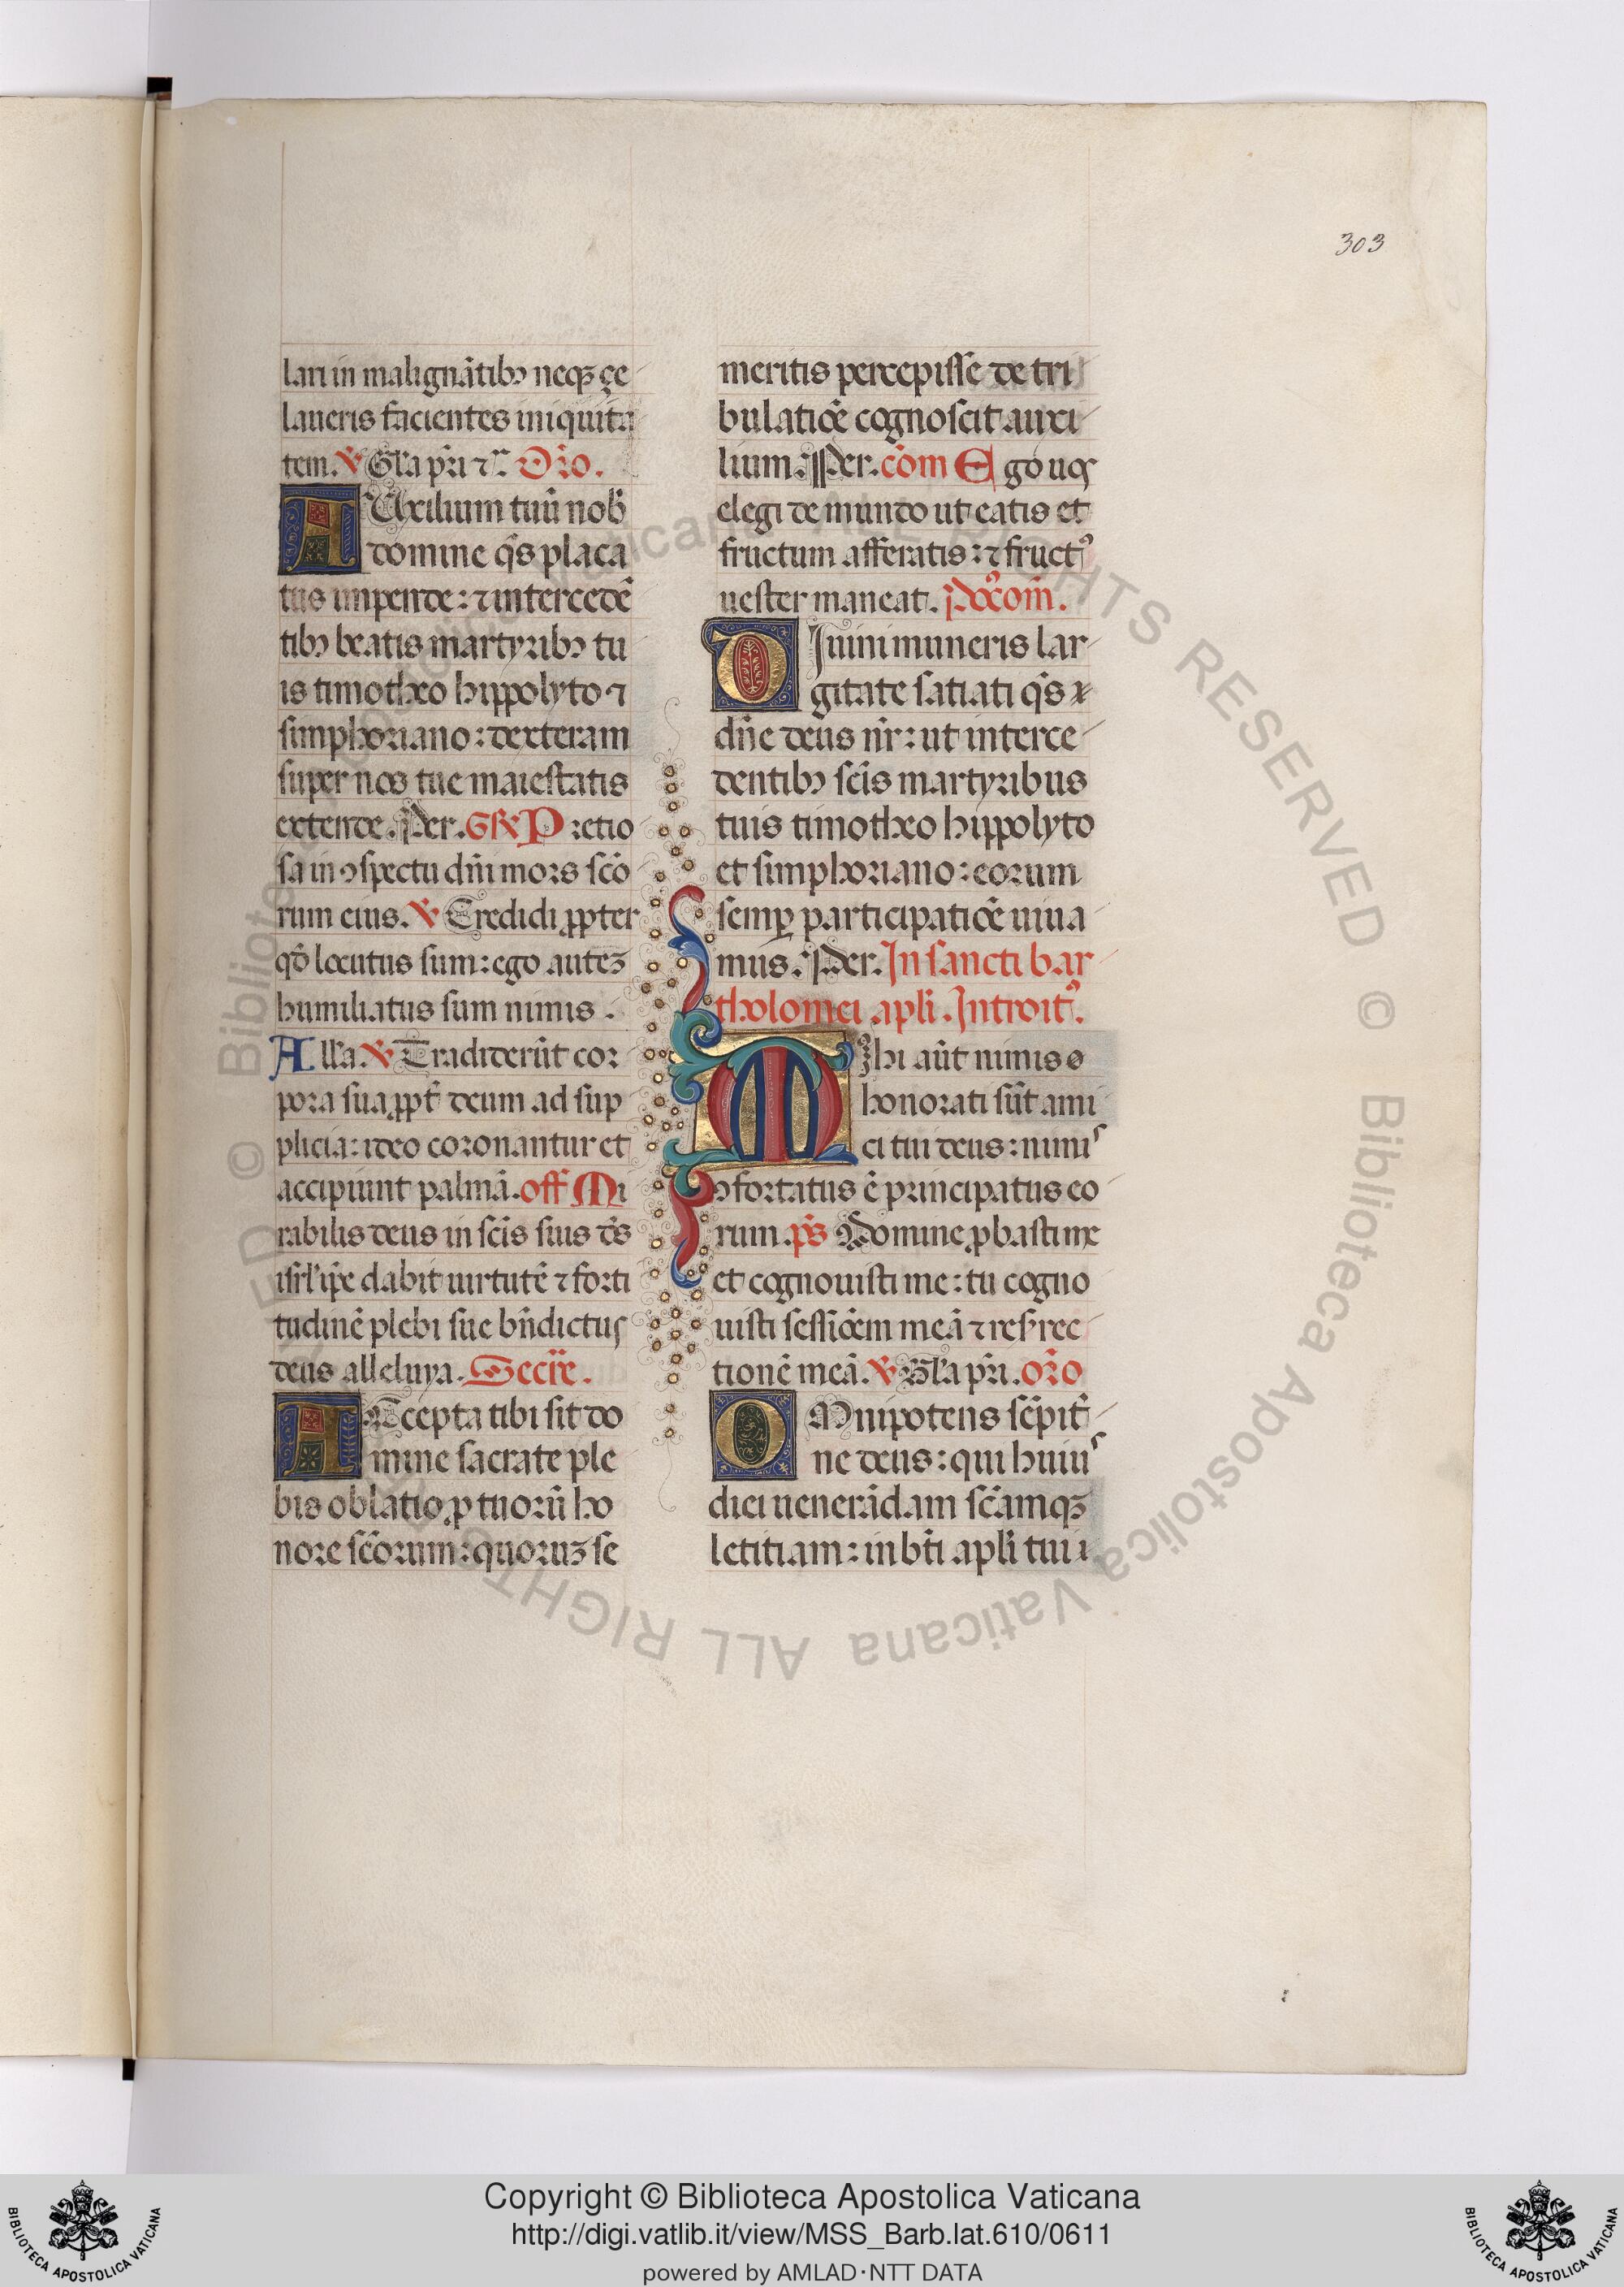 303
lari in malignātibꝰ neqꝫ çe
laueris facientes iniquita
tem. ℣ Gl'a pr̄i ⁊c̄ Or̄o.
AUxilium tuū nob̄
domine qs̄ placa
tus impende: ⁊ intercedē
tibꝰ beatis martyribꝰ tu
is timotheo hippolyto ⁊
simphoriano: dexteram
super nos tue maiestatis
extende. Per. GR̄ Pretio
sa in ↄspectu dn̄i mors sc̄o
rum eius. ℣ Credidi ꝓpter
qd̄ locutus sum: ego auteꝫ
humiliatus sum nimis.
All'a ℣ Tradiderūt cor
pora sua ꝓpt̄ deum ad sup
plicia: ideo coronantur et
accipiunt palmā. off Mi
rabilis deus in sc̄is suis ds̄
isrl' ip̄e dabit uirtutē ⁊ forti
tudinē plebi sue bn̄dictus
deus alleluya. Secr̄e.
ACcepta tibi sit do
mine sacrate ple
bis oblatio ꝓ tuorū ho
nore sc̄orum: quoruꝫ se
meritis percepisse de tri
bulatiōe cognoscit auxi
lium. Per. cōm Ego uos
elegi de mundo ut eatis et
fructum afferatis: ⁊ fructꝰ
uester maneat. Poꝰcom̄.
DIuini muneris lar
gitate satiati qs̄
dn̄e deus nr̄: ut interce
dentibꝰ sc̄is martyribus
tuis timotheo hippolyto
et simphoriano: eorum
semꝑ participatiōe uiua
mus. Per. In sancti bar
tholomei apl̄i. Introitꝰ.
MIhi aūt nimis
honorati sūt ami
ci tui deus: nimis
ↄfortatus ē principatus eo
rum. ps̄ Domine ꝓbasti me
et cognouisti me: tu cogno
uisti sessiōem meā ⁊ resˀrec
tionē meā. ℣ Gl'a pr̄i. or̄o
OMnipotens sēpit̄
ne deus: qui huius
diei uenerādam sc̄amqꝫ
letitiam: in bt̄i apl̄i tui
Copyright © Biblioteca Apostolica Vaticana
http://digi.vatlib.it/view/MSS_Barb.lat.610/0611
powered by AMLAD·NTT DATA
BIBLIOTECA APOSTOLICA VATICANA
BIBLIOTECA APOSTOLICA VATICANA
© Biblioteca Apostolica Vaticana ALL RIGHTS RESERVED
© Biblioteca Apostolica Vaticana ALL RIGHTS RESERVED